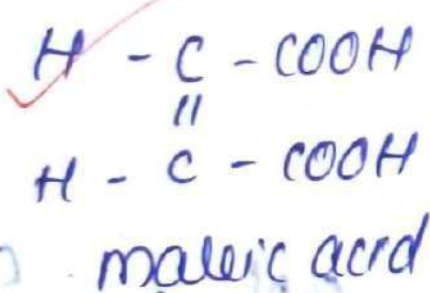 H - C - COOH
||
H - C - COOH
maleic acid